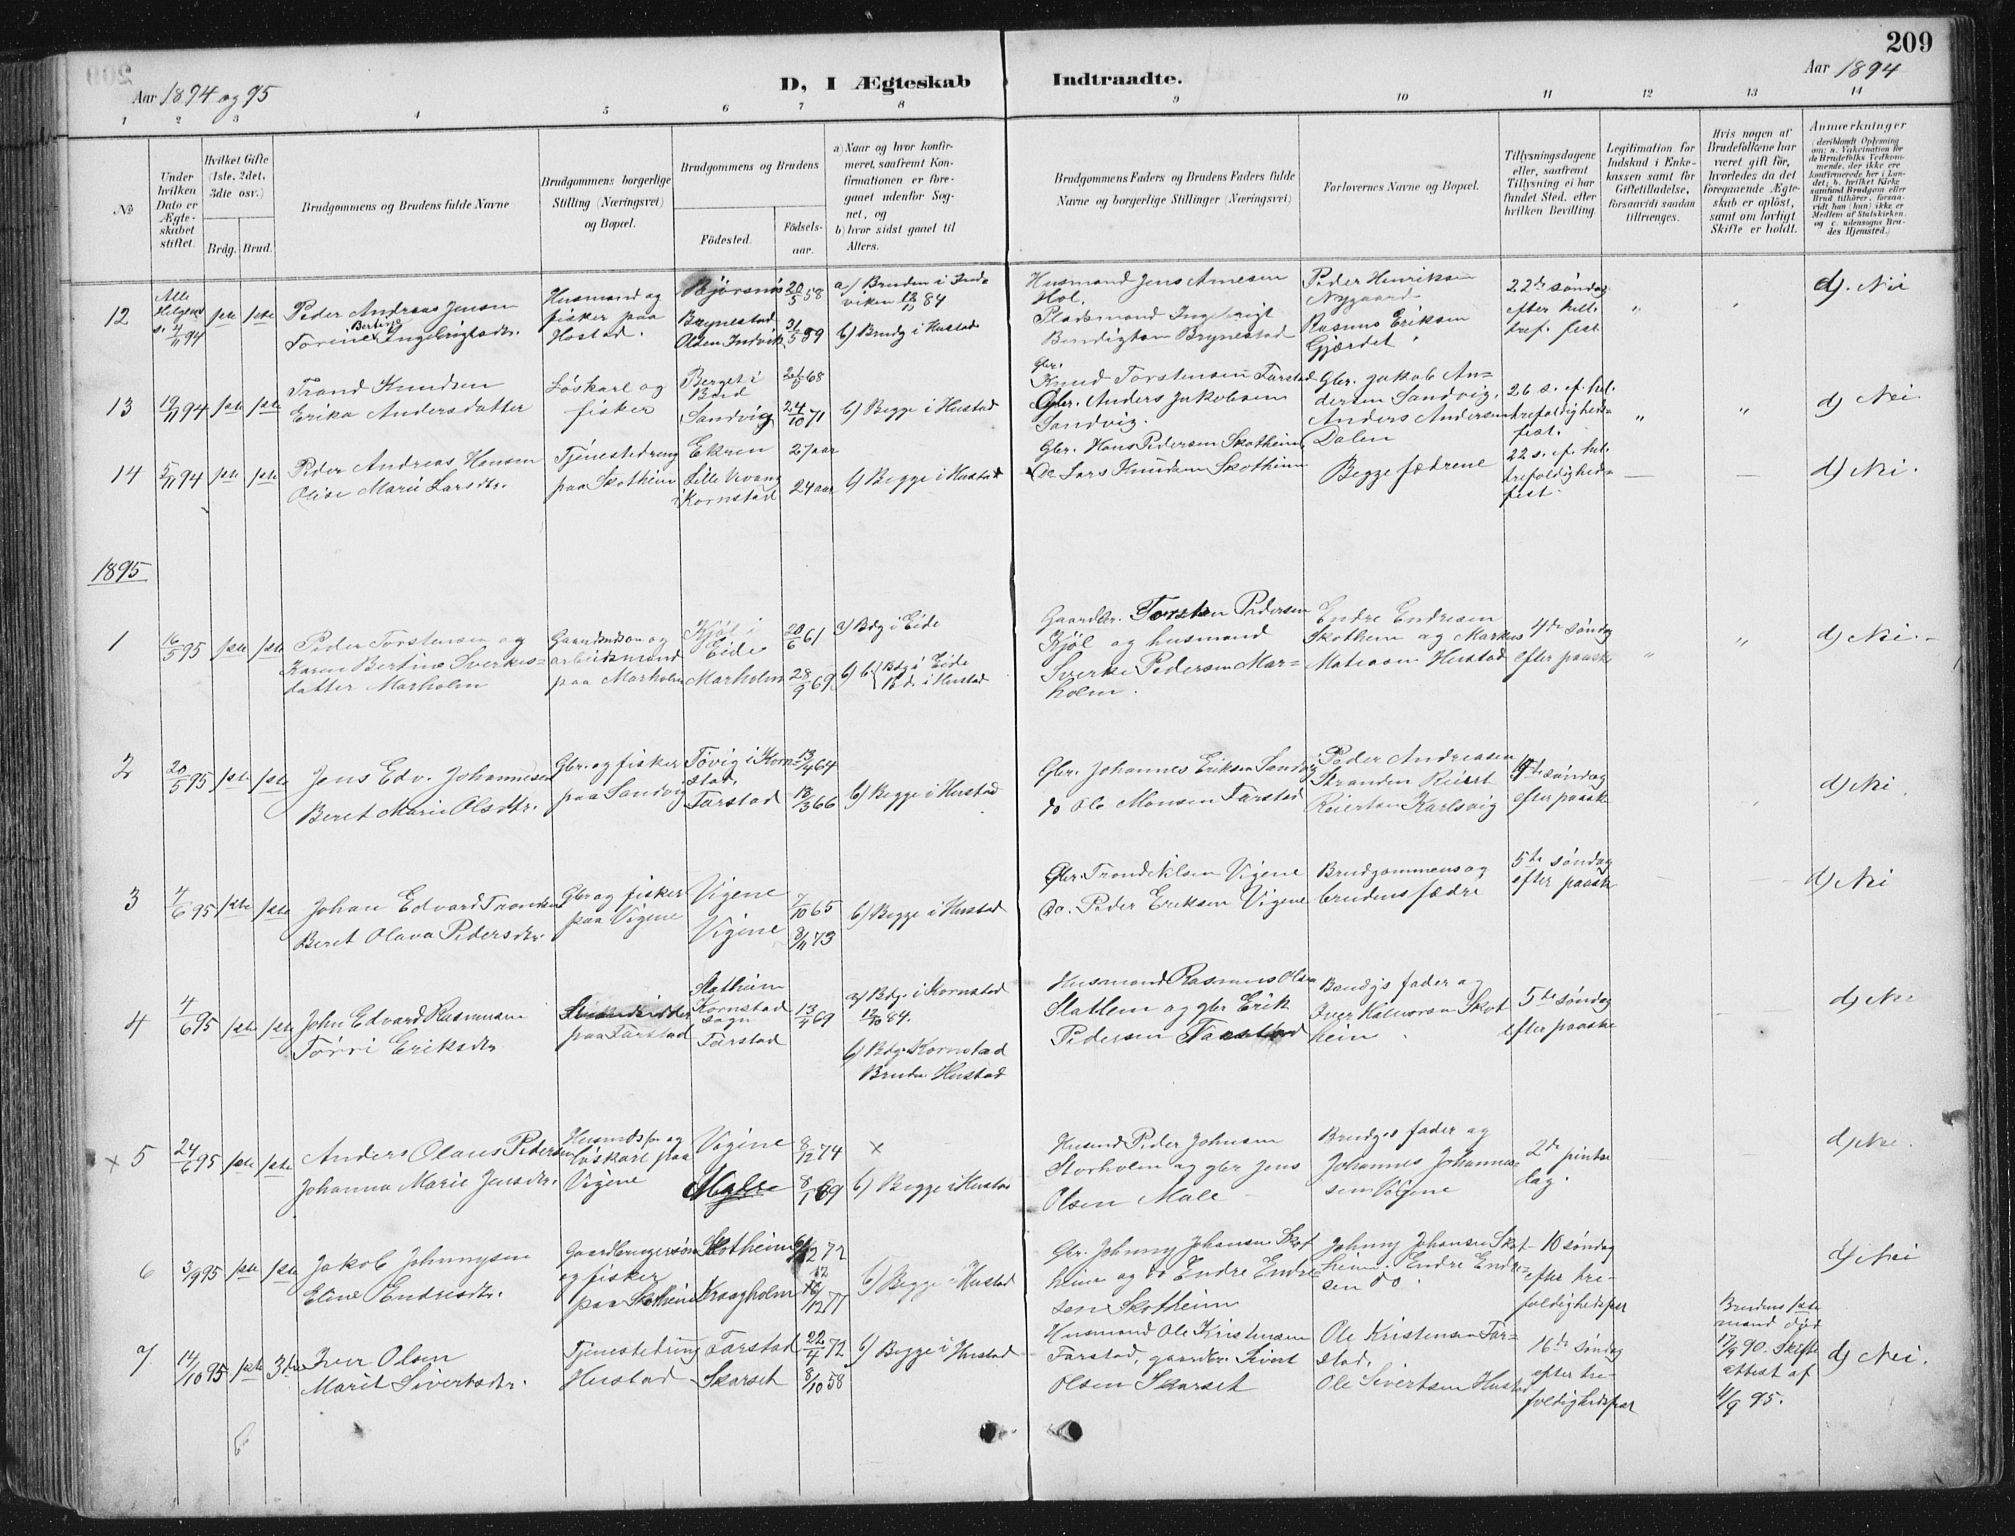 209
Aar 1894 og 95
D, I Ægteskab Indtraadte.
Aar 1894
1 2 3 4 5 6 7 8 9 10 11 12 13 14
№
Under hvilken Dato er Ægteskabet stiftet.
Hvilket Gifte (1ste, 2det, 3die osv.)
Brdg. Brud.
Brudgommens og Brudens fulde Navne
Brudgommens borgerlige Stilling (Næringsvei) og Bopæl.
Brudgommens og Brudens
Födested.
Födsels-aar.
a) Naar og hvor konfirmeret, saafremt Konfirmationen er foregaaet udenfor Sognet, og
b) hvor sidst gaaet til Alters.
Brudgommens Faders og Brudens Faders fulde Navne og borgerlige Stillinger (Næringsvei)
Forlovernes Navne og Bopæl.
Tillysningsdagene eller, saafremt Tillysning ei har fundet Sted, efter hvilken Bevilling.
Legitimation for Indskud i Enkekassen samt for Giftetilladelse, forsaavidt saadan tiltrænges.
Hvis nogen af Brudefolkene har været gift för, hvorledes da det foregaaende Ægteskab er oplöst, samt om lovligt Skifte er holdt.
Anmærkninger
12
Alle Helgens
4/11 94
1ste 1ste
Peder Andreas Jensen
Bertine
Torine Ingebrigtsdtr.
Husmand og
fisker paa
Hostad.
Bjørsnøs
Brynestad
Olden Indvik
20/5 58
31/5 59
a) Bruden i Ind-
viken 12/12 84
b) Brudg i Hustad
Husmand Jens Arnesen
Hol.
Pladsmand Ingebrigt
Bendigtsen Brynestad
Peder Henriksen
Nygaard
Rasmus Eriksen
Gjærdet
22de søndag
efter hel.
tref. fest
d). Nei
13
19/11 94
1ste 1ste
Trond Knudsen
Erika Andersdatter
Løskarl og
fisker
Berget i
Bud
Sandvig
68
24/10 71
b) Begge i Hustad
Gbr.
Knud Torstensen Farstad
Gbr. Anders Jakobsen
Sandvig.
Gbr. Jakob An-
dersen Sandvig.
Anders Andersen
Dalen
26 s. ef. hel.
trefoldigheds-
fest.
d) Nei.
14
5/11 94
1ste 1ste
Peder Andreas Hansen
Olise Marie Larsdtr.
Tjenestedreng
paa Skotheim
Ekren
Lille Vevang
i Kornstad
27 aar
24 aar
b) Begge i Hustad
Gbr. Hans Pedersen Skotheim
Do Lars Knudsen Skotheim
Begge fædrene
22 s. ef. hel.
trefoldigheds-
fest.
d) Nei.
1895
1
16/5 95
1ste 1ste
Peder Torstensen og
Karen Bertine Sverkes-
datter Marholm
Gaardmdsøn og
arbeidsmand
paa Marholm
Kjøl i
Eide
Marholm
20/6 61
28/9 69
a) Bdg i Eide
b) Bdg i Eide
Bd. i Hustad
Gaardbr. Torsten Pedersen
Kjøl og husmand
Sverke Pedersen Mar-
holm.
Endre Endresen
Skothem og Markus
Matiasen Hustad
4de søndag
efter paaske
d) Nei.
2
20/5 95
1ste 1ste
Jens Edv. Johannesen
Beret Marie Olsdtr.
Gbr. og fisker
paa Sandvig
Tøvig i Korn-
stad.
Farstad
13/4 64
18/3 66
b) Begge i Hustad
Gbr. Johannes Eriksen Sandvig
do Ole Monsen Farstad
Peder Andreasen
Stranden Reiert
Reiertsen Karlsvig
4de søndag
efter paaske
d) Nei.
3
4/6 95
1ste 1ste
Johan Edvard Tronsen
Beret Olava Pedersdtr
Gbr og fisker
paa Vigene
Vigene
Vigene
7/10 65
8/11 73
b) Begge i Hustad
Gbr. Trond Nilsen Vigene
do. Peder Eriksen Vigene
Brudgommens og
brudens fædre
5te søndag
efter paaske
d) Nei
4
4/6 95
1ste 1ste
John Edvard Rasmusen
Torri Eriksdtr
paa Farstad
Statheim
Kornstad
sogn
Farstad
13/4 69
a) Bdg. i Kornstad
12/10 84.
b) Bdg. Kornstad
Bruden Hustad
Husmand Rasmus Olsen
Statlem og gbr Erik
Pedersen Farstad
Brudgs fader og
Iver Halvorsen Skot
heim.
5te søndag
efter paaske
d) Nei
x 5
24/6 95
1ste 1ste
Anders Olaus Pedersen
Johanna Marie Jensdtr.
Husmdsøn og
løskarl paa
Vigene
Vigene
Male
8/12 74
8/1 69
x
b) Begge i Hustad
Husmd Peder Johnsen
Storholm og gbr Jens
Olsen Male
Brudgs fader og
Johannes Johannes-
sen Vigene
2de pintse
dag.
d) Nei.
6
3/9 95
1ste 1ste
Jakob Johnnysen
Eline Endresdtr.
Gaardbrugersøn
og fisker
paa Skotheim
Skotheim
Kraagholm
12 72
12 77
b) Begge i Hustad
Gbr. Johnny Johansen Skot
heim og do Endre Endre-
sen Skotheim
Johnny Johansen Skot-
heim. Endre Endre-
sen do.
10 søndag
efter tre-
foldighedsfest
d) Nei
7
14/10 95
1ste 3die
Iver Olsen
Marit Sivertsdtr.
Tjenestedreng
Hustad
Farstad
Skarset
22/4 72
8/10 58
b) Begge i Hustad
Husmand Ole Kristensen
Farstad, gaardbr. Sivert
Olsen Skarset
Ole Kristensen Far-
stad.
Ole Sivertsen Hustad
16de søndag
efter tre-
foldighedsfest
Brudens 1ste
mand død
17/9 90. Skifte
attest af
4/9 95.
d) Nei.